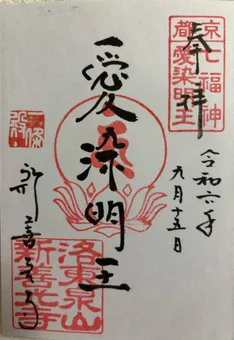 京
都
七福神
愛染明王
奉拝
令和六年
九月十五日
愛染明王
洛東泉山
新善光寺